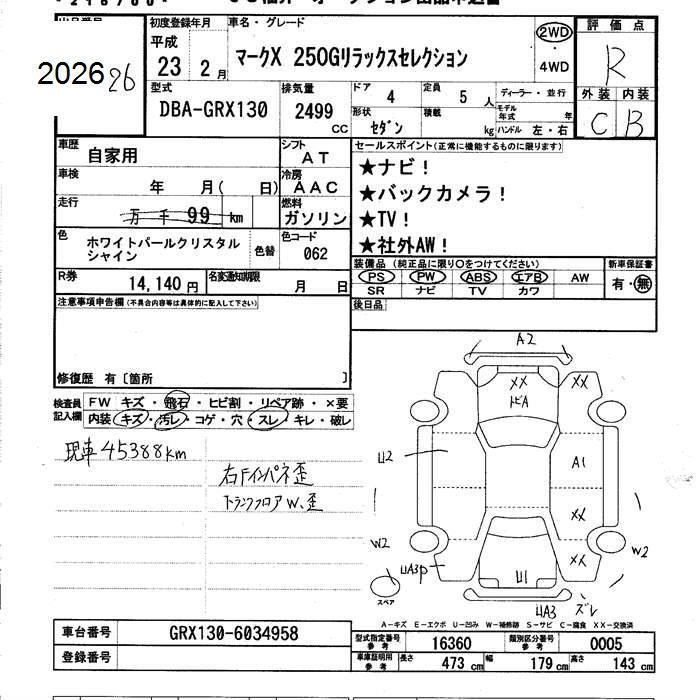 初度登録年月 車名・グレード 評価点
平成 23年 2月 マークX 250Gリラックスセレクション 2WD ・ 4WD R
202626
型式 排気量 ドア 定員 ディーラー・並行 外装 内装
DBA-GRX130 2499 CC 4 5人 モデル年式 年 C B
形状 積載 ハンドル 左・右
セダン kg
車歴 シフト セールスポイント(正常に機能するものに限ります)
自家用 AT ★ナビ!
車検 冷房 ★バックカメラ!
年 月( 日) AAC
走行 燃料 ★TV!
万 千 99 km ガソリン
色 色コード ★社外AW!
ホワイトパールクリスタル
シャイン 色替 062
装備品(純正品に限り○をつけてください) 新車保証書
PS PW ABS エアB AW 有・無
SR ナビ TV カワ
R券 名変通知期限
14,140円 月 日
後日品
注意事項申告欄(不具合内容等は具体的に記入して下さい)
修復歴 有〔箇所 〕
検査員記入欄
FW キズ・飛石・ヒビ割・リペア跡・×要
内装 キズ・汚レ・コゲ・穴・スレ・キレ・破レ
現車45388km
右Fインパネ歪
トランクフロアW、歪
A2
XX XX
トビA
U2 A1
XX
W2 XX W2
UA3P U1
スペア
UA3 ズレ
A-キズ E-エクボ U-凹み W-補修跡 S-サビ C-腐食 XX-交換済
車台番号 GRX130-6034958
登録番号
型式指定番号 参考 16360 類別区分番号 参考 0005
車庫証明用 参考 長さ 473 cm 幅 179 cm 高さ 143 cm